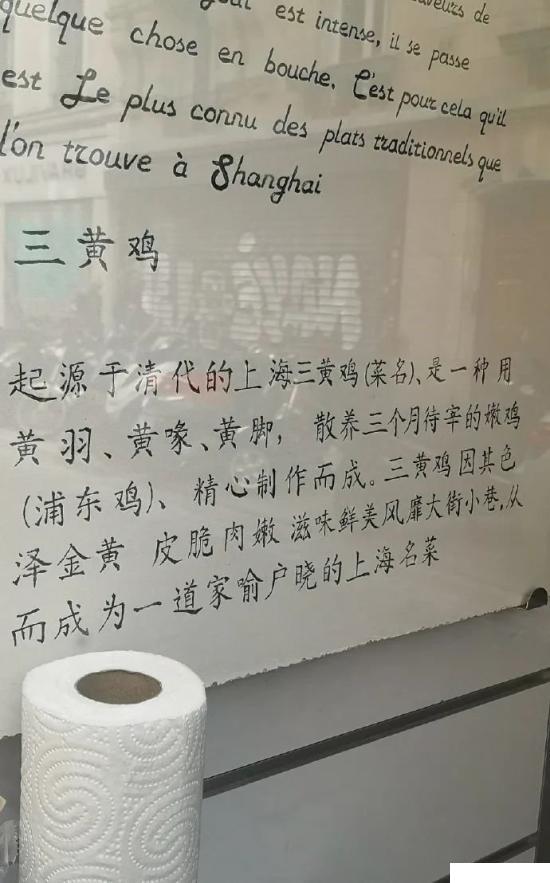 goût est intense, il se passe
quelque chose en bouche. C'est pour cela qu'il
est Le plus connu des plats traditionnels que
l'on trouve à Shanghai
三黄鸡
起源于清代的上海三黄鸡(菜名)、是一种用
黄羽、黄喙、黄脚, 散养三个月待宰的嫩鸡
(浦东鸡)、精心制作而成。三黄鸡因其色
泽金黄 皮脆肉嫩 滋味鲜美风靡大街小巷,从
而成为一道家喻户晓的上海名菜